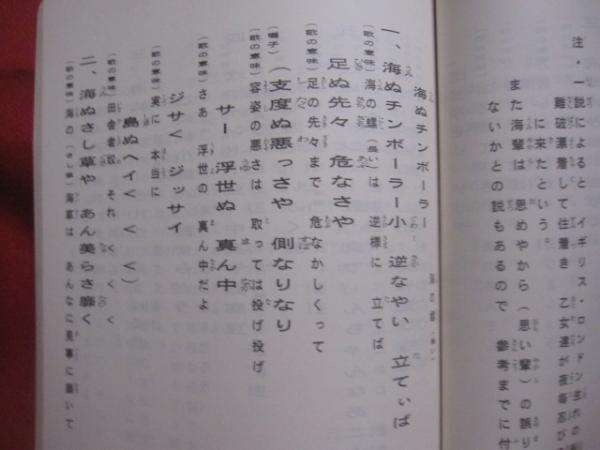 注・一説によると イギリス・ロンドン生れの
難破漂着して住着き 乙女達が夜毎忍び
に来たという。
また海輩は 思めやから(思い輩)の誤り
ないかとの説もあるので 参考までに付
海ぬチンボーラー
一、海ぬチンボーラー小 逆なやい 立てぃば
(歌の意味)海の(長い)は 逆様に 立てば
足ぬ先々 危なさや
(歌の意味)足の先々まで 危なかしくって
(囃子)(支度ぬ悪っさや 側なりなり
(歌の意味)容姿の悪さは 取っては投げ投げ
サー 浮世ぬ 真ん中
(歌の意味)さあ 浮世の 真ん中だよ
ジサく ジッサイ
(歌の意味)実に 本当に
島ぬヘイく く く)
(歌の意味)田舎者奴 それ く く く
二、海ぬさし草や あん美らさ靡く
(歌の意味)海の 海草は あんなに 見事に 靡いて